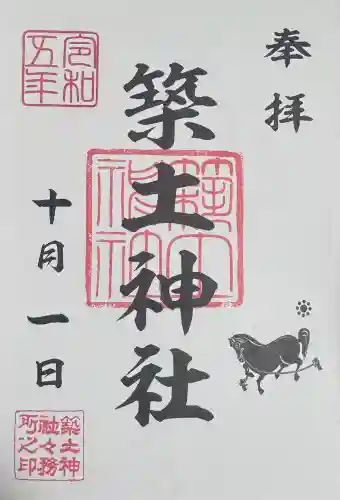 奉拝
築土神社
築土神社
令和五年
十月一日
築土神社々務所之印